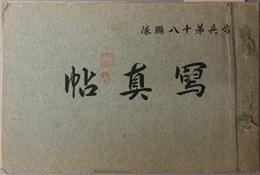 隊聯八十第兵歩
帖真寫